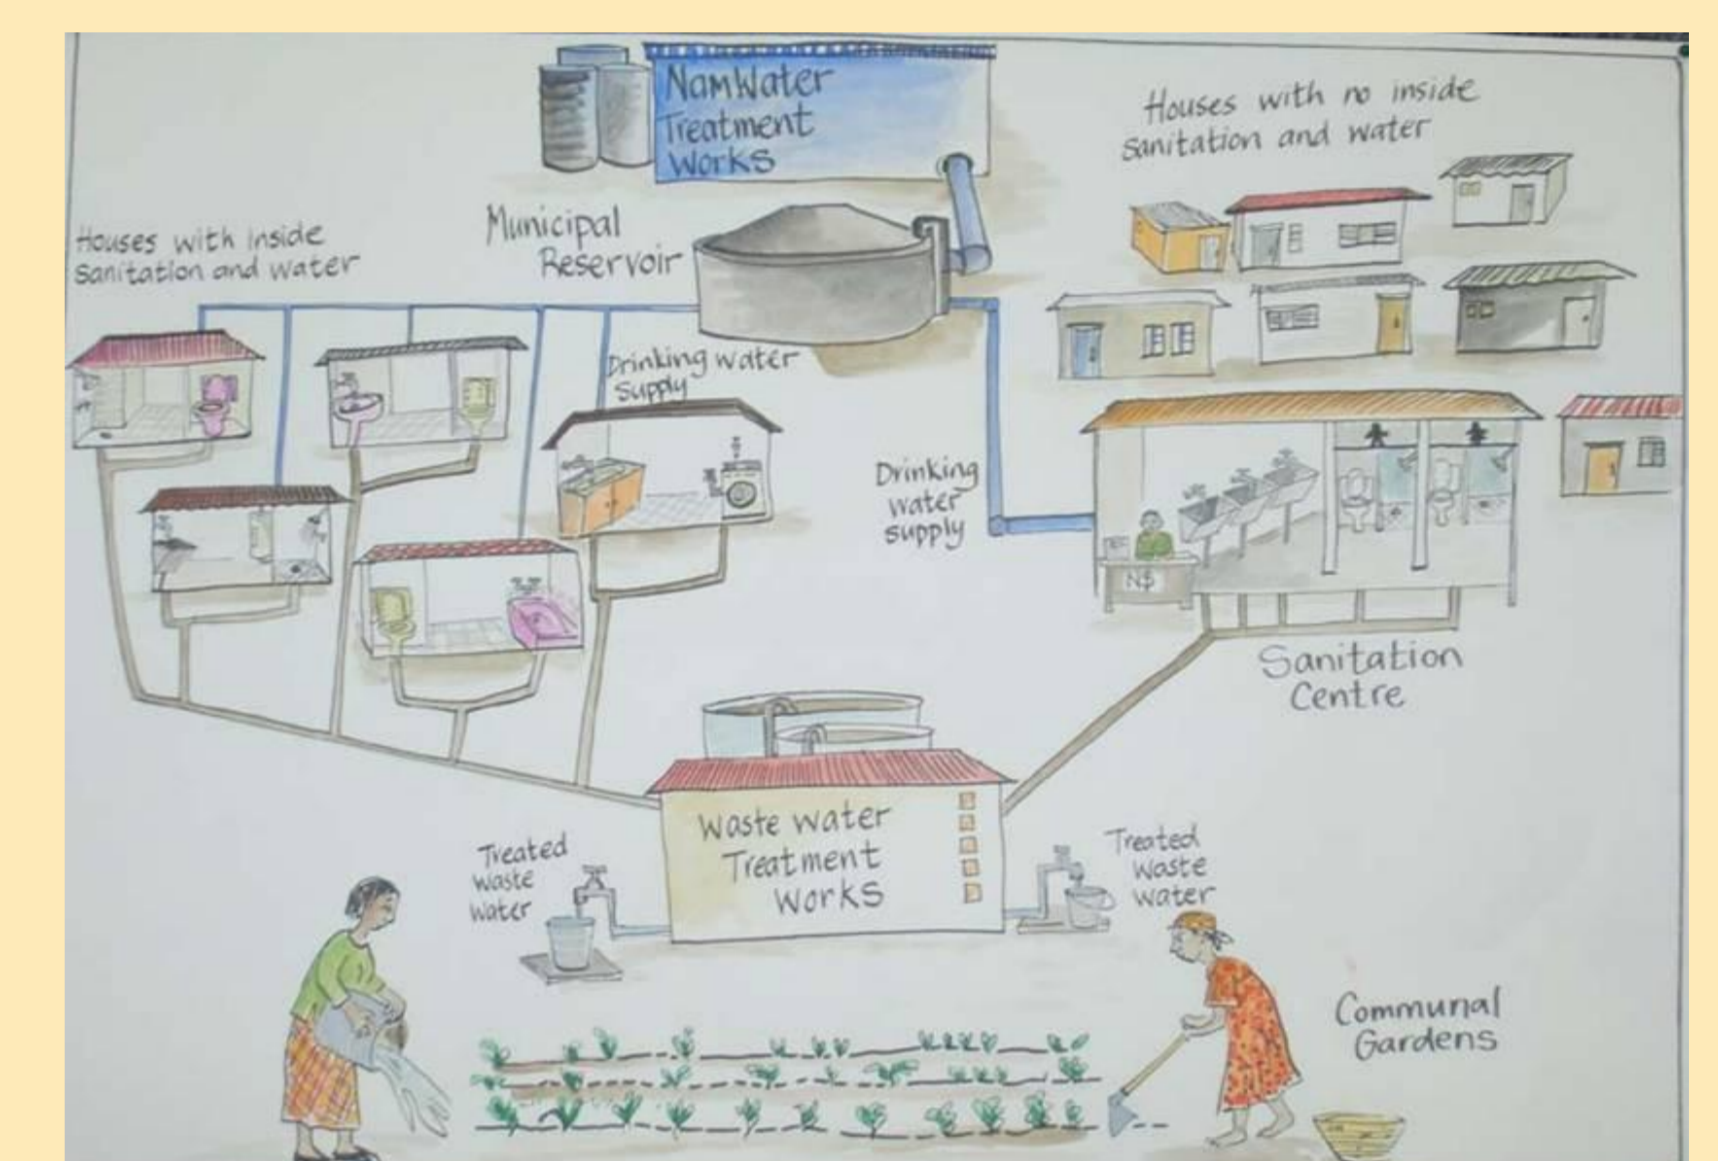 NamWater
Treatment
Works
Houses with no inside
sanitation and water
Municipal
Reservoir
Houses with inside
sanitation and water
Drinking water
supply
Drinking
water
supply
N$
Sanitation
Centre
Waste water
Treatment
Works
Treated
waste
water
Treated
waste
water
Communal
Gardens